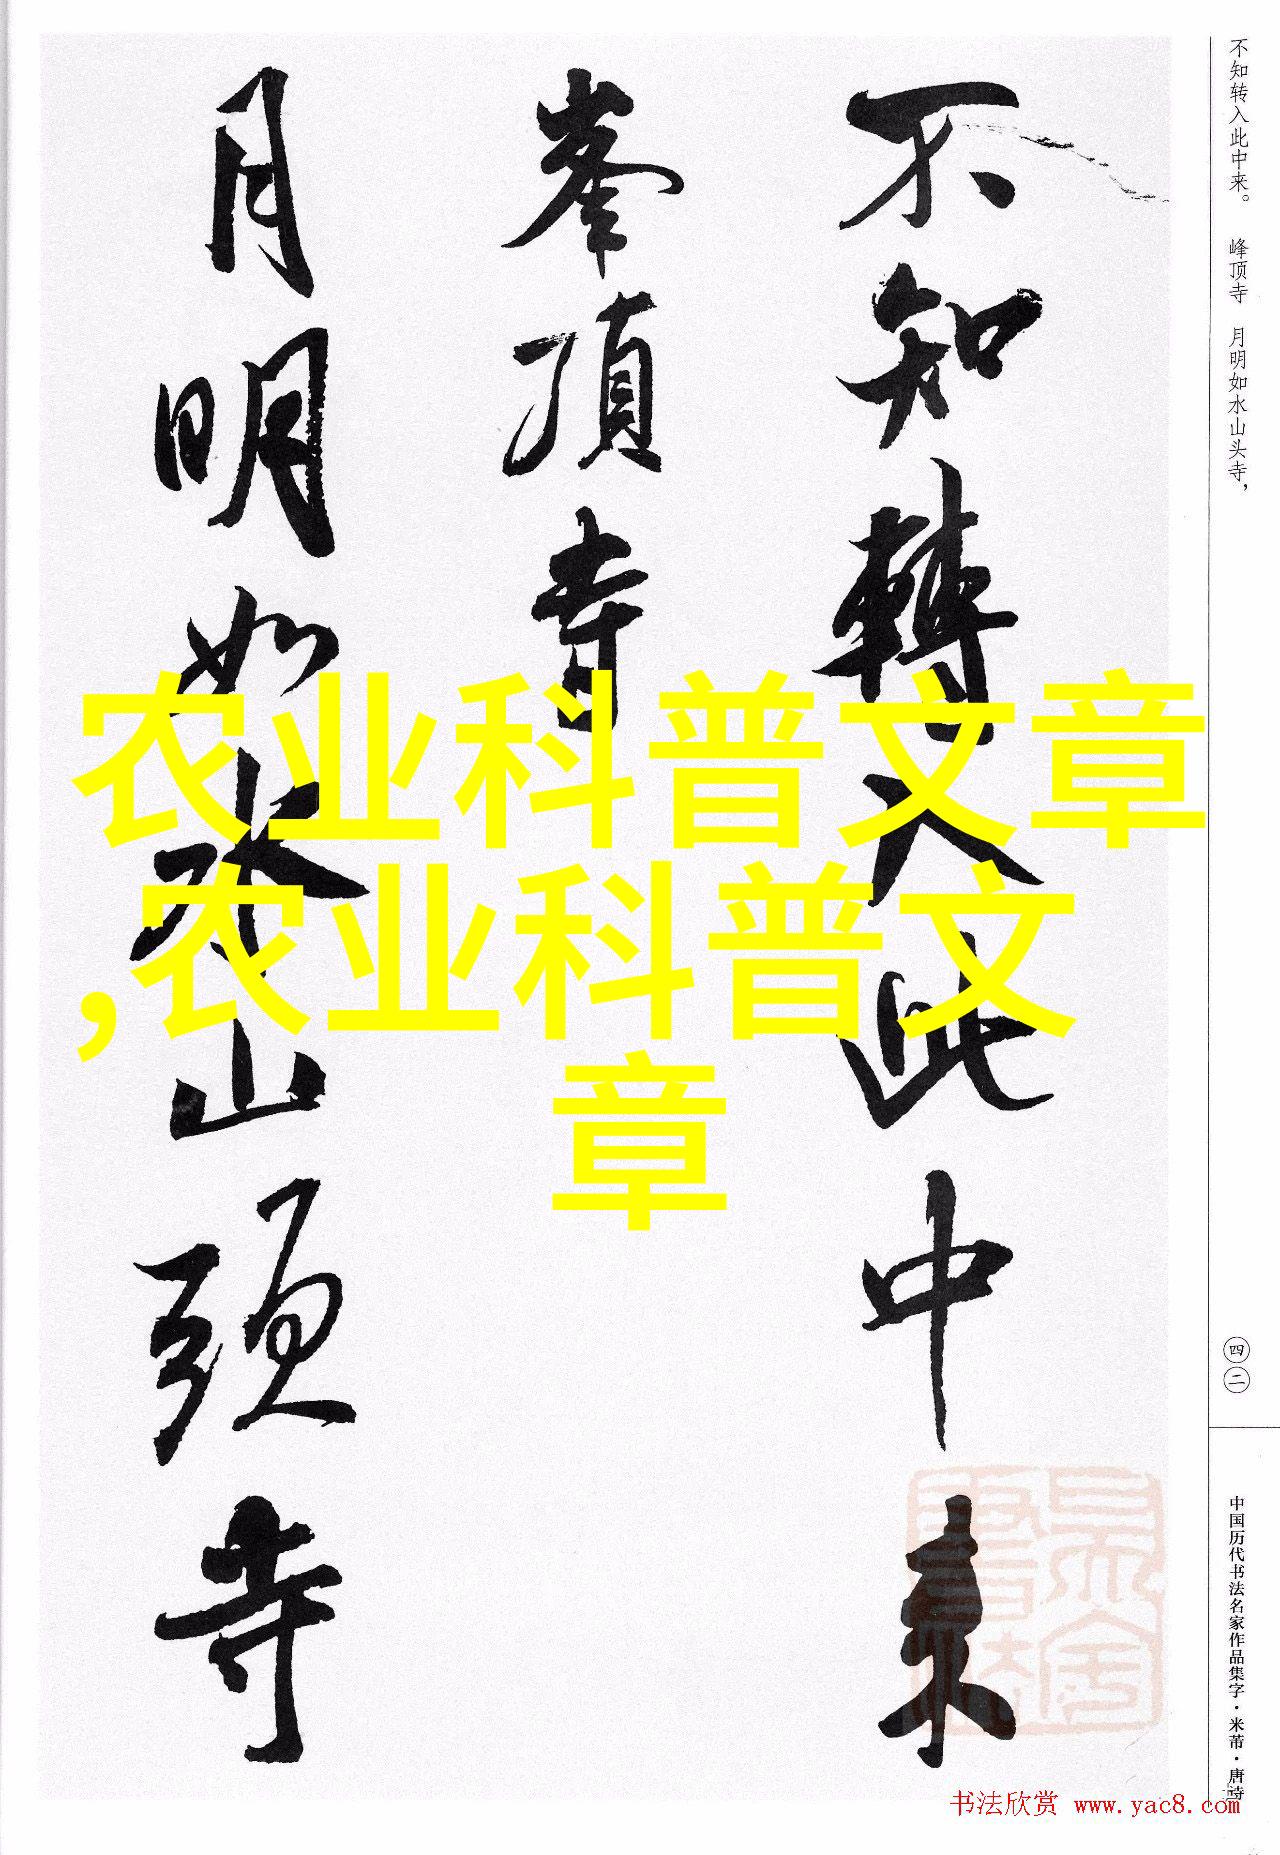 不知轉入此中来
峯頂寺
月明如水山頭寺
农业科普文章
,农业科普文
章
不知转入此中来。 峰顶寺 月明如水山头寺，
四二
中国历代书法名家作品集字·米芾·唐诗
书法欣赏 www.yac8.com